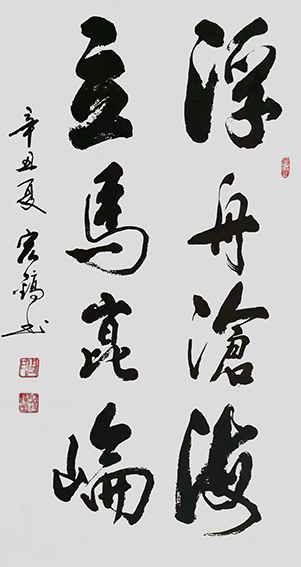 浮舟滄海
立馬崑崙
辛丑夏 宏鎬书